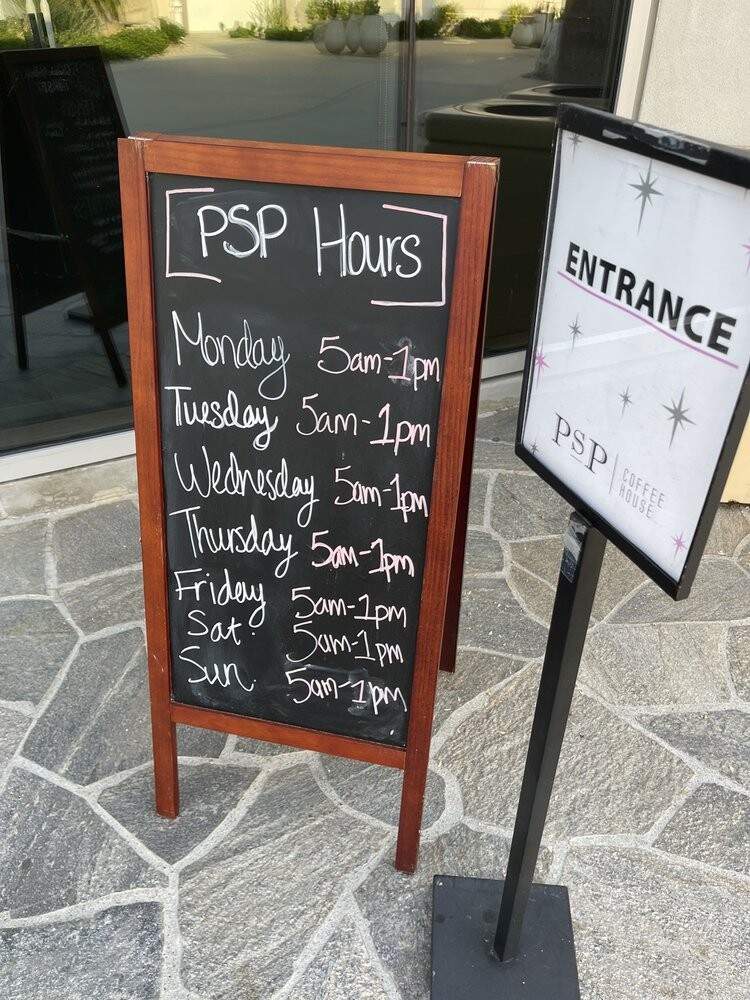 PSP Hours
Monday 5am-1pm
Tuesday 5am-1pm
Wednesday 5am-1pm
Thursday 5am-1pm
Friday 5am-1pm
Sat. 5am-1pm
Sun. 5am-1pm
ENTRANCE
PSP COFFEE
HOUSE